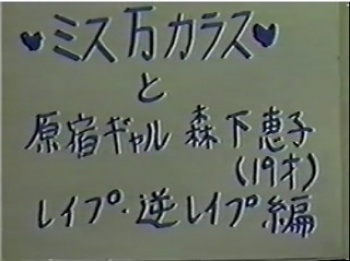 ♥ミス万カラス♥
と
原宿ギャル 森下恵子
(19才)
レイプ・逆レイプ編